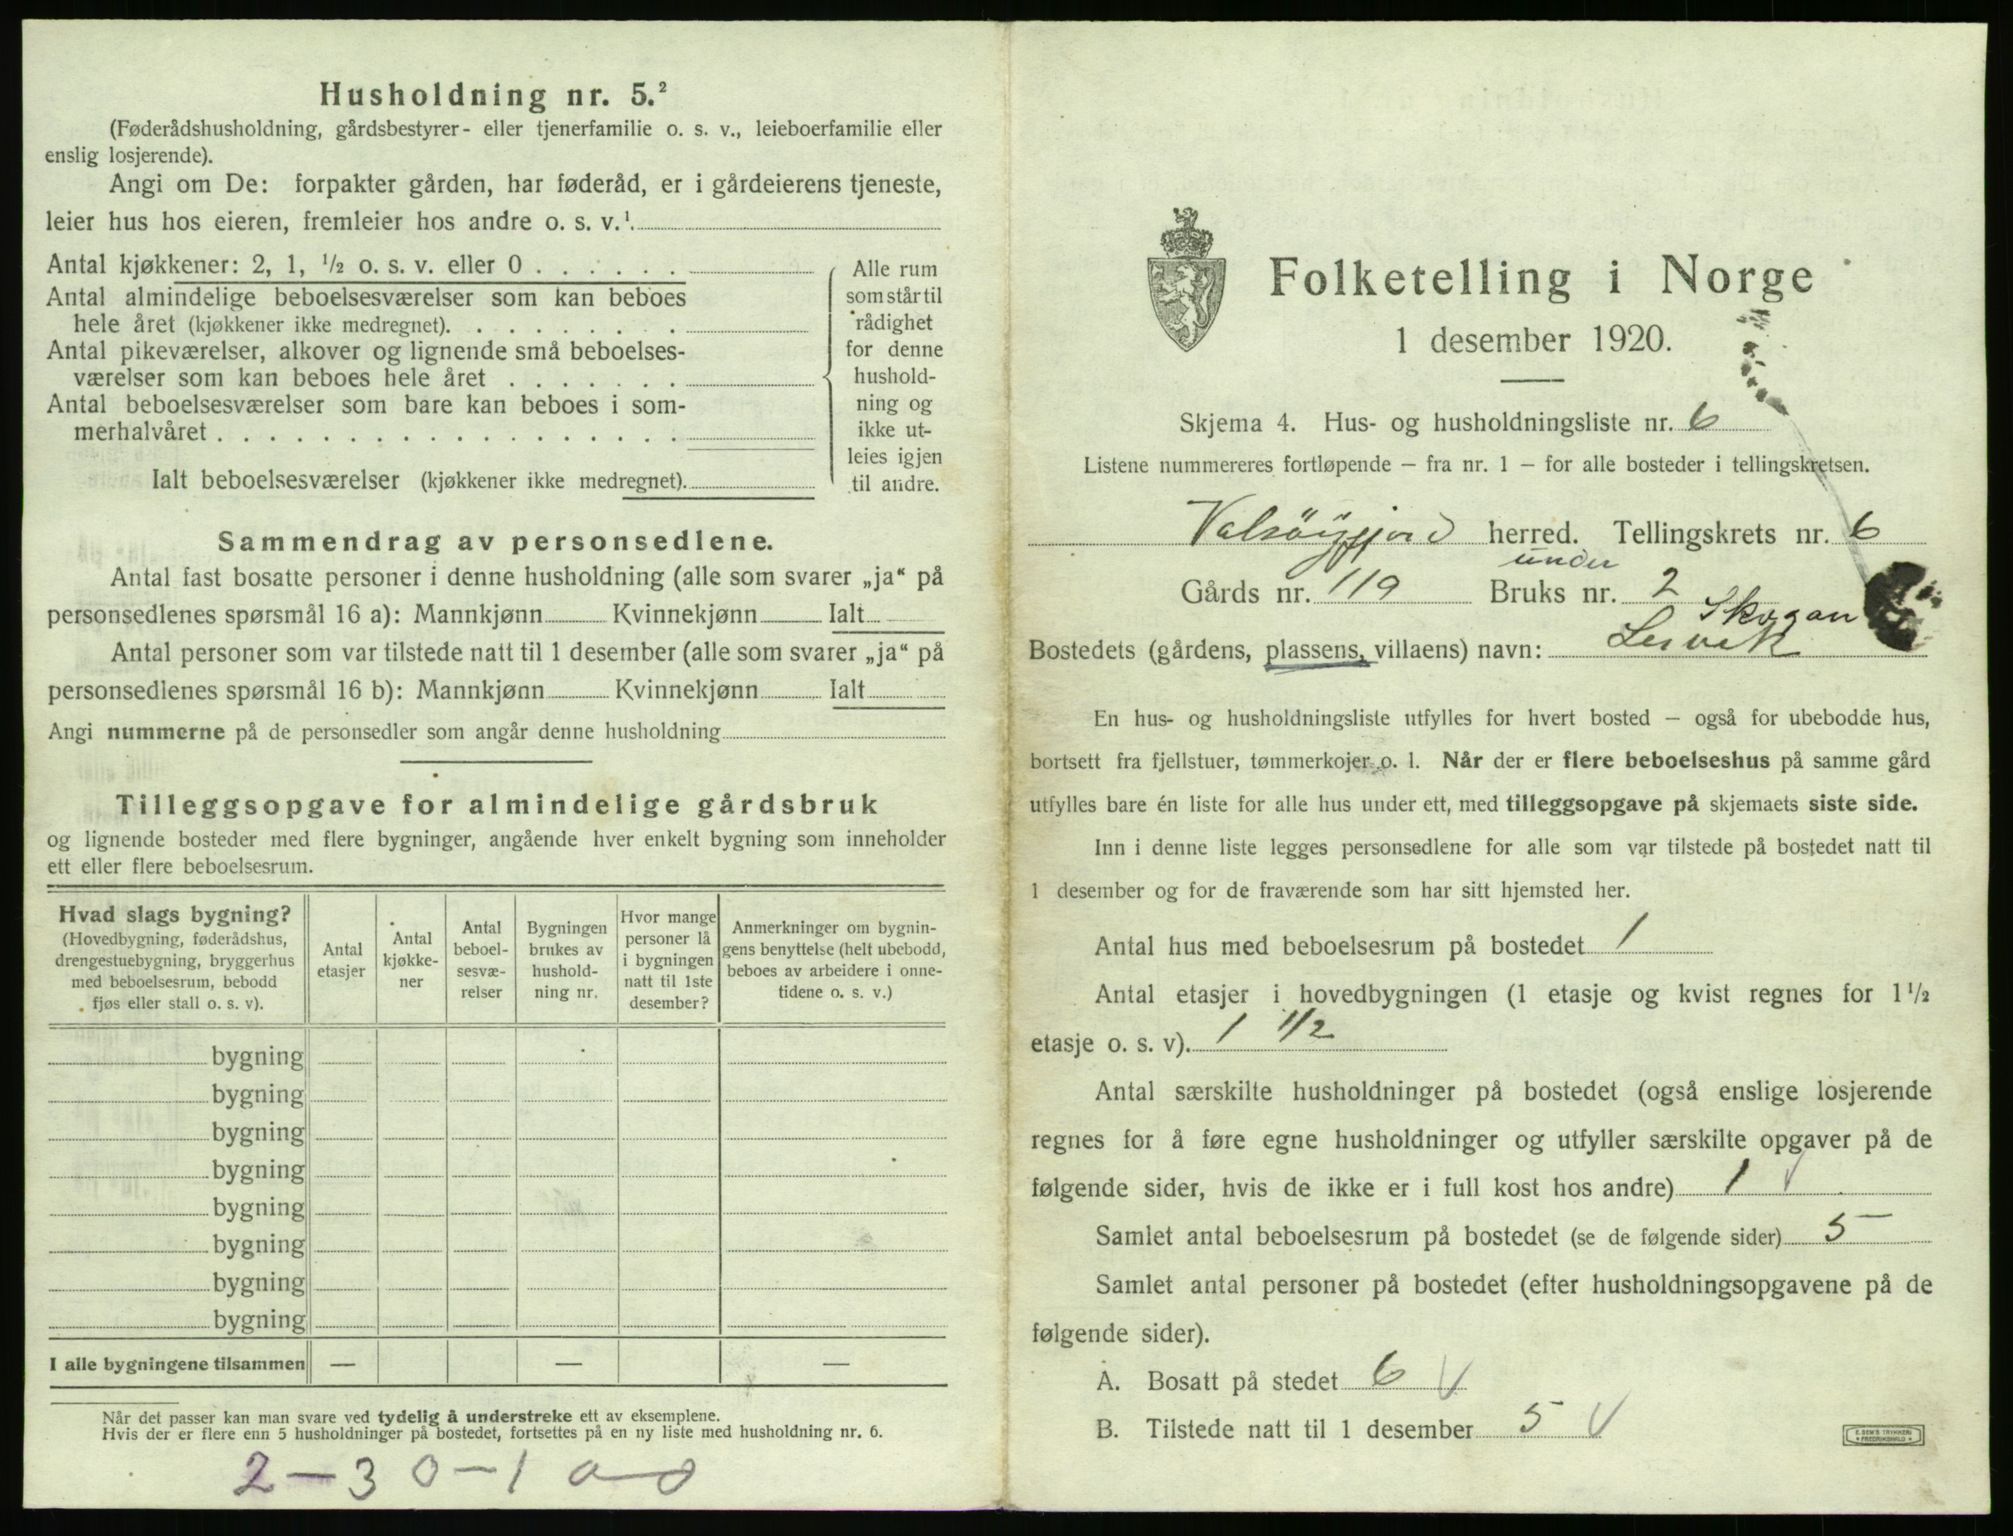 Husholdning nr. 5.²
(Føderådshusholdning, gårdsbestyrer- eller tjenerfamilie o. s. v., leieboerfamilie eller
enslig losjerende).
Angi om De: forpakter gården, har føderåd, er i gårdeierens tjeneste,
leier hus hos eieren, fremleier hos andre o. s. v.¹
Antal kjøkkener: 2, 1, ½ o. s. v. eller 0 . . . . . .
Antal almindelige beboelsesværelser som kan beboes
hele året (kjøkkener ikke medregnet). . . . . . . . .
Antal pikeværelser, alkover og lignende små beboelses-
værelser som kan beboes hele året . . . . . . .
Antal beboelsesværelser som bare kan beboes i som-
merhalvåret . . . . . . . . . . . . . . . . . .
Ialt beboelsesværelser (kjøkkener ikke medregnet).
Alle rum
som står til
rådighet
for denne
hushold-
ning og
ikke ut-
leies igjen
til andre.
Sammendrag av personsedlene.
Antal fast bosatte personer i denne husholdning (alle som svarer „ja“ på
personsedlenes spørsmål 16 a): Mannkjønn Kvinnekjønn Ialt
Antal personer som var tilstede natt til 1 desember (alle som svarer „ja“ på
personsedlenes spørsmål 16 b): Mannkjønn Kvinnekjønn Ialt
Angi nummerne på de personsedler som angår denne husholdning
Tilleggsopgave for almindelige gårdsbruk
og lignende bosteder med flere bygninger, angående hver enkelt bygning som inneholder
ett eller flere beboelsesrum.
Hvad slags bygning?
(Hovedbygning, føderådshus,
drengestuebygning, bryggerhus
med beboelsesrum, bebodd
fjøs eller stall o. s. v).
Antal
etasjer
Antal
kjøkke-
ner
Antal
beboel-
sesvæ-
relser
Bygningen
brukes av
hushold-
ning nr.
Hvor mange
personer lå
i bygningen
natt til 1ste
desember?
Anmerkninger om bygnin-
gens benyttelse (helt ubebodd,
beboes av arbeidere i onne-
tidene o. s. v.)
bygning
bygning
bygning
bygning
bygning
bygning
bygning
bygning
I alle bygningene tilsammen — — —
Når det passer kan man svare ved tydelig å understreke ett av eksemplene.
Hvis der er flere enn 5 husholdninger på bostedet, fortsettes på en ny liste med husholdning nr. 6.
2 — 3 0 — 1
Folketelling i Norge
1 desember 1920.
Skjema 4. Hus- og husholdningsliste nr. 6
Listene nummereres fortløpende – fra nr. 1 – for alle bosteder i tellingskretsen.
Valsøyfjord herred. Tellingskrets nr. 6
under
Gårds nr. 119 Bruks nr. 2
Skogan
Bostedets (gårdens, plassens, villaens) navn: Lervik
En hus- og husholdningsliste utfylles for hvert bosted – også for ubebodde hus,
bortsett fra fjellstuer, tømmerkojer o. l. Når der er flere beboelseshus på samme gård
utfylles bare én liste for alle hus under ett, med tilleggsopgave på skjemaets siste side.
Inn i denne liste legges personsedlene for alle som var tilstede på bostedet natt til
1 desember og for de fraværende som har sitt hjemsted her.
Antal hus med beboelsesrum på bostedet 1
Antal etasjer i hovedbygningen (1 etasje og kvist regnes for 1½
etasje o. s. v). 1 1/2
Antal særskilte husholdninger på bostedet (også enslige losjerende
regnes for å føre egne husholdninger og utfyller særskilte opgaver på de
følgende sider, hvis de ikke er i full kost hos andre) 1 V
Samlet antal beboelsesrum på bostedet (se de følgende sider) 5
Samlet antal personer på bostedet (efter husholdningsopgavene på de
følgende sider).
A. Bosatt på stedet 6 V
B. Tilstede natt til 1 desember 5 V
E. SEM'S TRYKKERI
FREDRIKSHALD